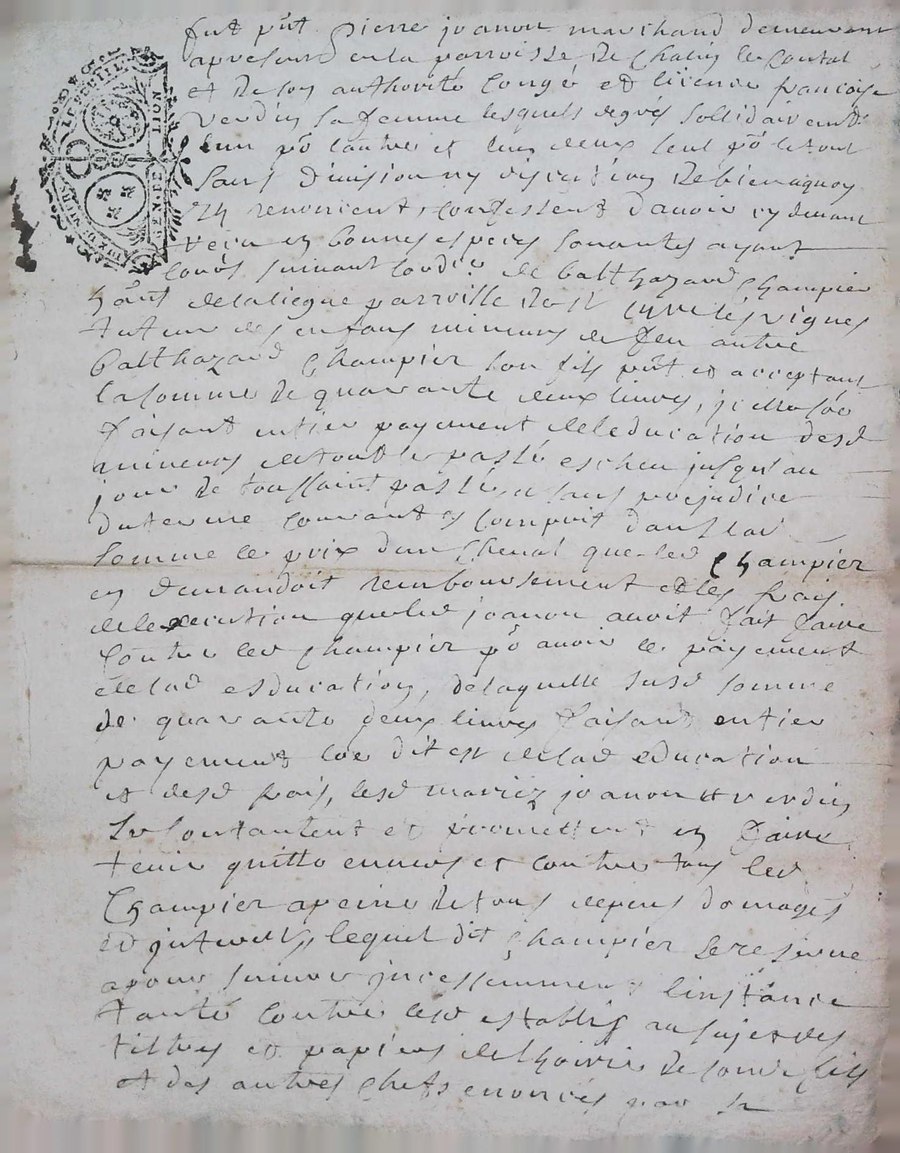 fut pñt Pierre joanon marchand demeurant
apresent en la parroisse de Chatis le Contal
et de son authorité Congé et licence francoise
Verdin sa femme lesquels de grés sollidairemt
lun põ lautre et lun deux seul põ le tout
sans division ny discution de bien aquoy
ilz renoncent, confessent davoir cy devant
receu en bonnes especes sonantes ayant
cours suivant lordre de balthazard Champier
hãnt de la liegue parroisse de st Cyre les vignes
tuteur des enfans mineurs de feu autre
balthazard Champier son fils pñt et acceptant
la somme de quarante deux livres, jcelle sõe
faisant entier payement de leducation desd
mineurs de tout le passé escheu jusqu'au
jour de toussaint passée, et sans prejudice
du terme courant et compris dans lad
somme le prix dun cheval que led Champier
en demandoit remboursement et les frais
de lexecution que led joanon avoit fait faire
contre led Champier põ avoir le payement
de lad esducation, de laquelle susd somme
de quarante deux livres faisant entier
payement coe dit est de lad education
et desd frais, lesd mariez joanon et verdin
se contantent et promettent en faire
tenir quitte envers et contre tous led
Champier a peine de tous depens domages
et jnterests, lequel dit Champier se reserve
a pour suivre jncessamment linstance
tanté contre lesd establis au sujet des
tiltres et papiers de lhoirie de sond fils
et des autres chefs enoncés par la
LE FEUILL
GEN. DE LION